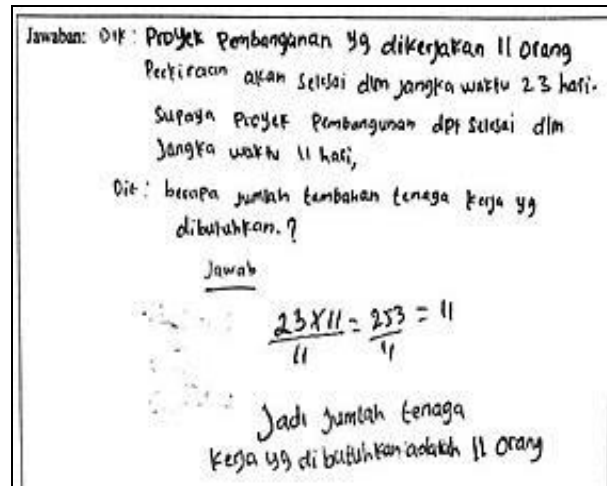 Jawaban: Dik: Proyek Pembanganan yg dikerjakan 11 orang
Perkiraan akan selesai dlm jangka waktu 23 hari.
Supaya Proyek Pembangunan dpt Selesai dlm
Jangka waktu 11 hari,
Dit: berapa jumlah tambahan tenaga kerja yg
dibutuhkan.?
Jawab
23X11 / 11 = 253 / 11 = 11
Jadi Jumlah tenaga
Kerja yg dibutuhkan adalah 11 orang